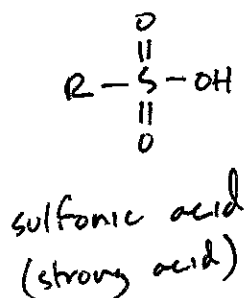 O
||
R — S — OH
||
O
sulfonic acid
(strong acid)